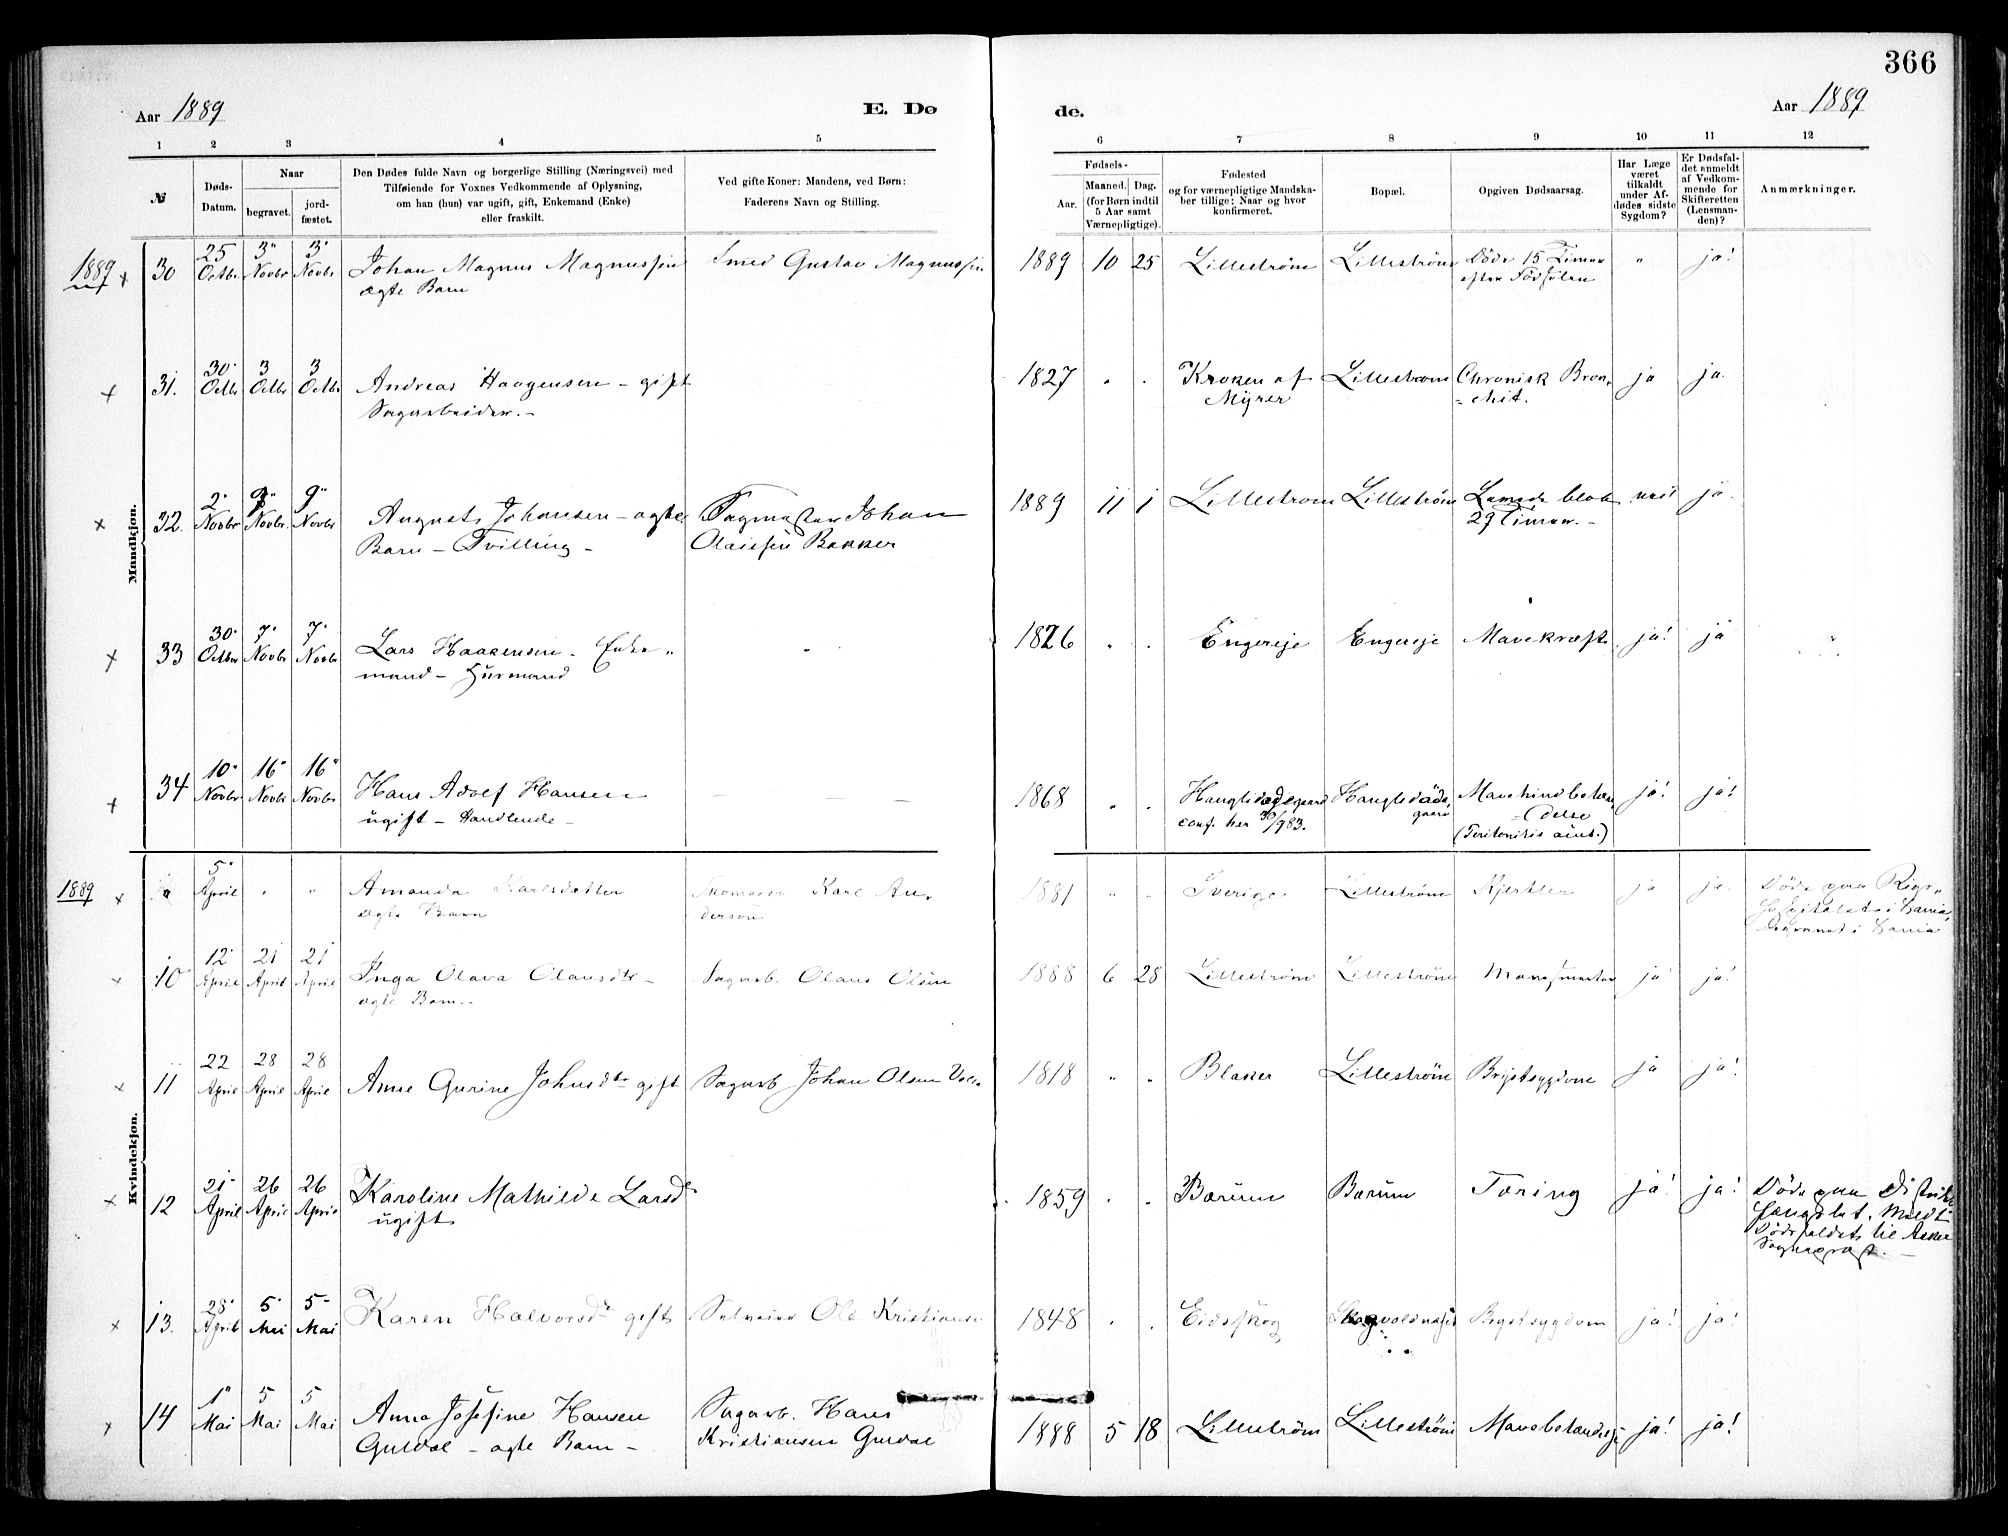 366
Aar 1889 E. Dø
de. Aar 1889
1 2 3 4 5 6 7 8 9 10 11 12
№
Døds-
Datum.
Naar
begravet.
jord-
fæstet.
Den Dødes fulde Navn og borgerlige Stilling (Næringsvei) med
Tilføiende for Voxnes Vedkommende af Oplysning,
om han (hun) var ugift, gift, Enkemand (Enke)
eller fraskilt.
Ved gifte Koner: Mandens, ved Børn:
Faderens Navn og Stilling.
Fødsels-
Aar.
Maaned. Dag.
(for Børn indtil
5 Aar samt
Værnepligtige).
Fødested
og for værnepligtige Mandska-
ber tillige: Naar og hvor
konfirmeret.
Bopæl.
Opgiven Dødsaarsag.
Har Læge
været
tilkaldt
under Af-
dødes sidste
Sygdom?
Er Dødsfal-
det anmeldt
af Vedkom-
mende for
Skifteretten
(Lensman-
den)?
Anmærkninger.
Mandkjøn.
1889 × 30 25 Octbr 3 Novbr 3 Novbr Johan Magnus Magnussen Smed Gustav Magnussen 1889 10 25 Lillestrøm Lillestrøm Døde 15 Timer " ja!
ægte Barn efter Fødselen
× 31. 30 Octbr 3 Octbr 3 Octbr Andreas Haagensen - gift 1827 " " Kroken af Lillestrøm Chronisk Bron- ja ja.
Sagarbeider. - Myrer =chit.
× 32. 2 Novbr 9 Novbr 9 Novbr August Johansen - ægte Sagmester Johan 1889 11 1 Lillestrøm Lillestrøm Levede blot nei ja
Barn - Tvilling - Olaissen Bakker 29 Timer. -
× 33 30 Octbr 7 Novbr 7 Novbr Lars Haakensen - Enke " " 1826 " " Engereje Engereje Mavekræft ja! ja "
mand - Huusmand
× 34 10 Novbr 16 Novbr 16 Novbr Hans Adolf Hansen — — 1868 " " ja! ja!
ugift - Handlende - conf. her 30/983.
Kvindekjøn.
1889 × 5 April " " Amanda Karlsdatter Karl An- 1881 " " Sverige Lillestrøm Kjertler ja ja. Døde paa Rigs-
ægte Barn derson
× 10 12 April 21 April 21 April Inga Olava Olausdtr - Sagarb. Olaus Olsen 1888 6 28 Lillestrøm Lillestrøm ja ja!
ægte Barn. -
× 11 22 April 28 April 28 April Anne Gurine Johnsdtr gift Sagarb Johan Olsen 1818 " " Blaker Lillestrøm Brystsygdom ja ja!
× 12 21 April 26 April 26 April Karoline Mathilde Larsd 1859 " " Bærum Bærum Tæring ja! ja! Døde paa Distrikts
ugift fængslet. Meldt
Dødsfaldet til Asker
Sogneprest. -
× 13. 28 April 5 Mai 5 Mai Karen Halvorsd gift Ole Kristiansen 1848 " " Eidsskog Brystsygdom ja! ja!
× 14 1 Mai 5 Mai 5 Mai Anna Josefine Hansen Sagarb. Hans 1888 5 18 Lillestrøm Lillestrøm ja! ja!
Guldal - ægte Barn - Kristiansen Guldal